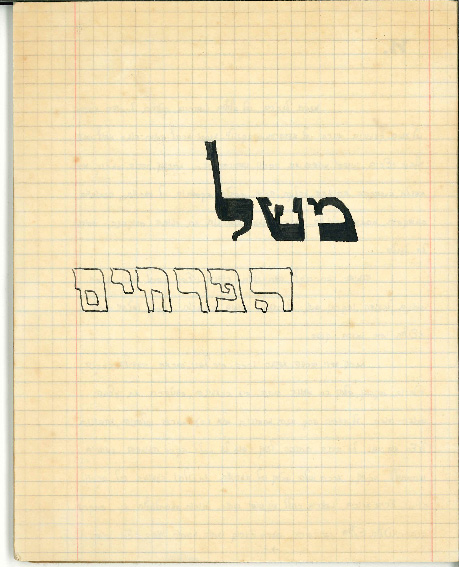 משל
הפרחים